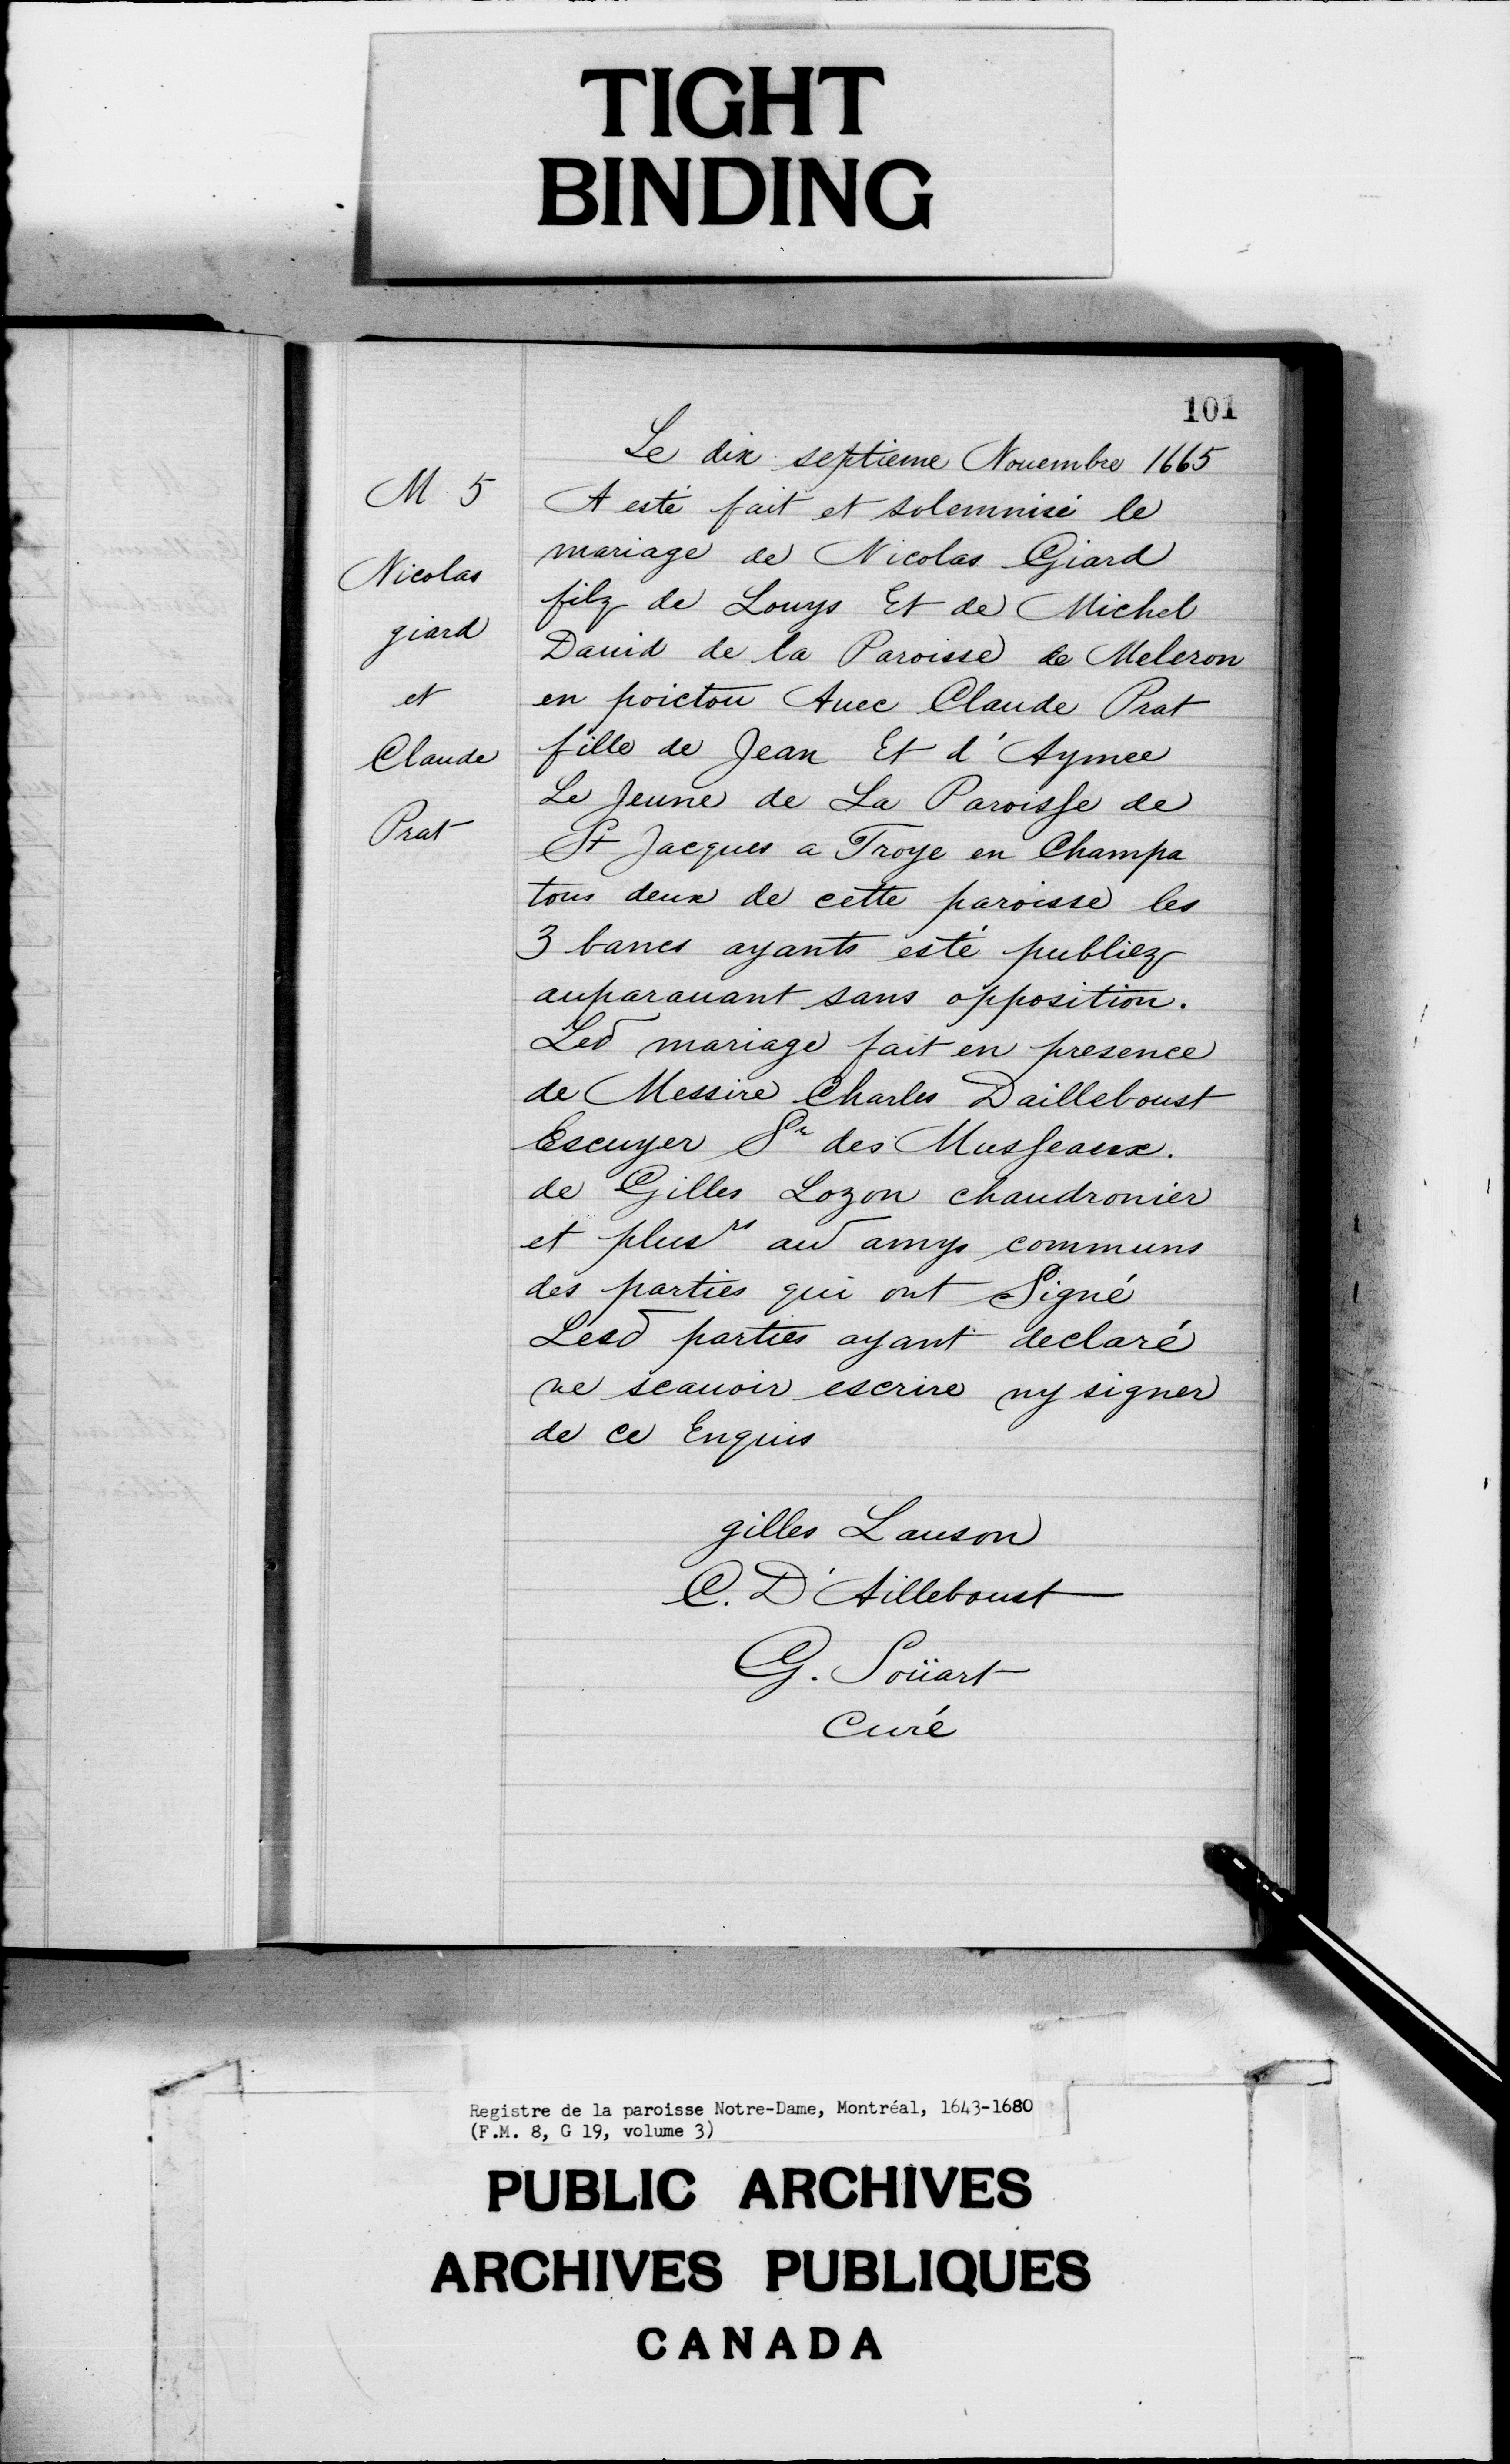 TIGHT
BINDING
101
M 5
Nicolas
giard
et
Claude
Prat
Le dix septieme Nouembre 1665
A esté fait et solemnisé le
mariage de Nicolas Giard
filz de Louys Et de Michel
Dauid de la Paroisse de Meleron
en poictou Auec Claude Prat
fille de Jean Et d'Aymee
Le Jeune de La Paroisse de
St Jacques a Troye en Champa
tous deux de cette paroisse les
3 bancs ayants esté publiez
auparauant sans opposition.
Led mariage fait en presence
de Messire Charles Dailleboust
Escuyer Sr des Musseaux.
de Gilles Lozon chaudronier
et plusrs au amys communs
des parties qui ont Signé
Lesd parties ayant declaré
ne scauoir escrire ny signer
de ce Enquis
gilles Lauson
C. D'Ailleboust
G. Soüart
Curé
Registre de la paroisse Notre-Dame, Montréal, 1643-1680
(F.M. 8, G 19, volume 3)
PUBLIC ARCHIVES
ARCHIVES PUBLIQUES
CANADA